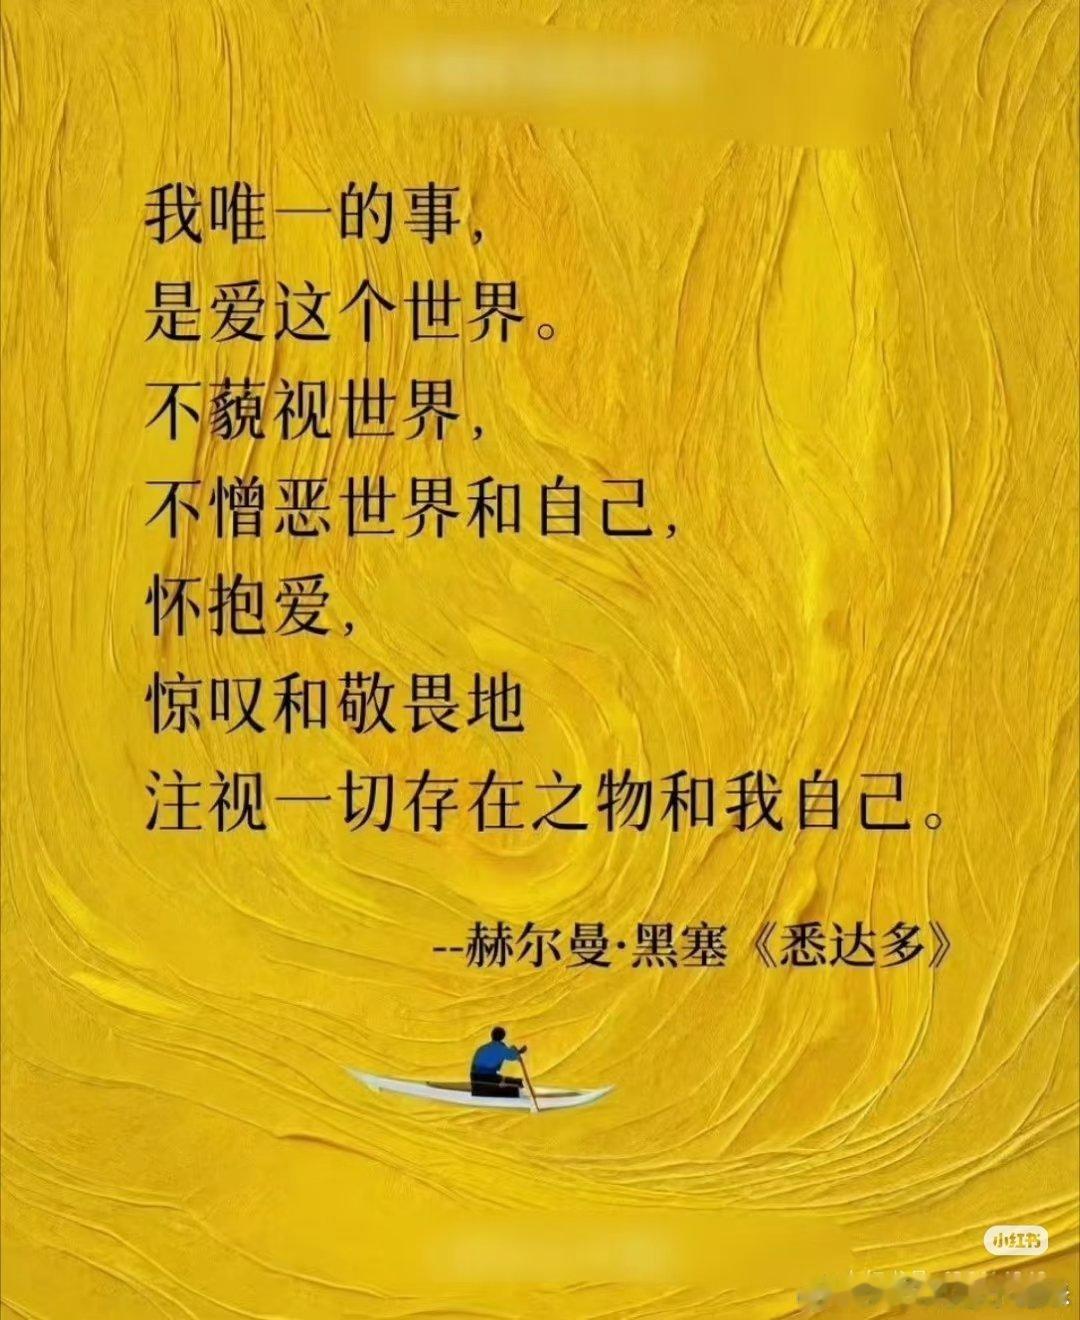 我唯一的事，
是爱这个世界。
不藐视世界，
不憎恶世界和自己，
怀抱爱，
惊叹和敬畏地
注视一切存在之物和我自己。
--赫尔曼·黑塞《悉达多》
小红书